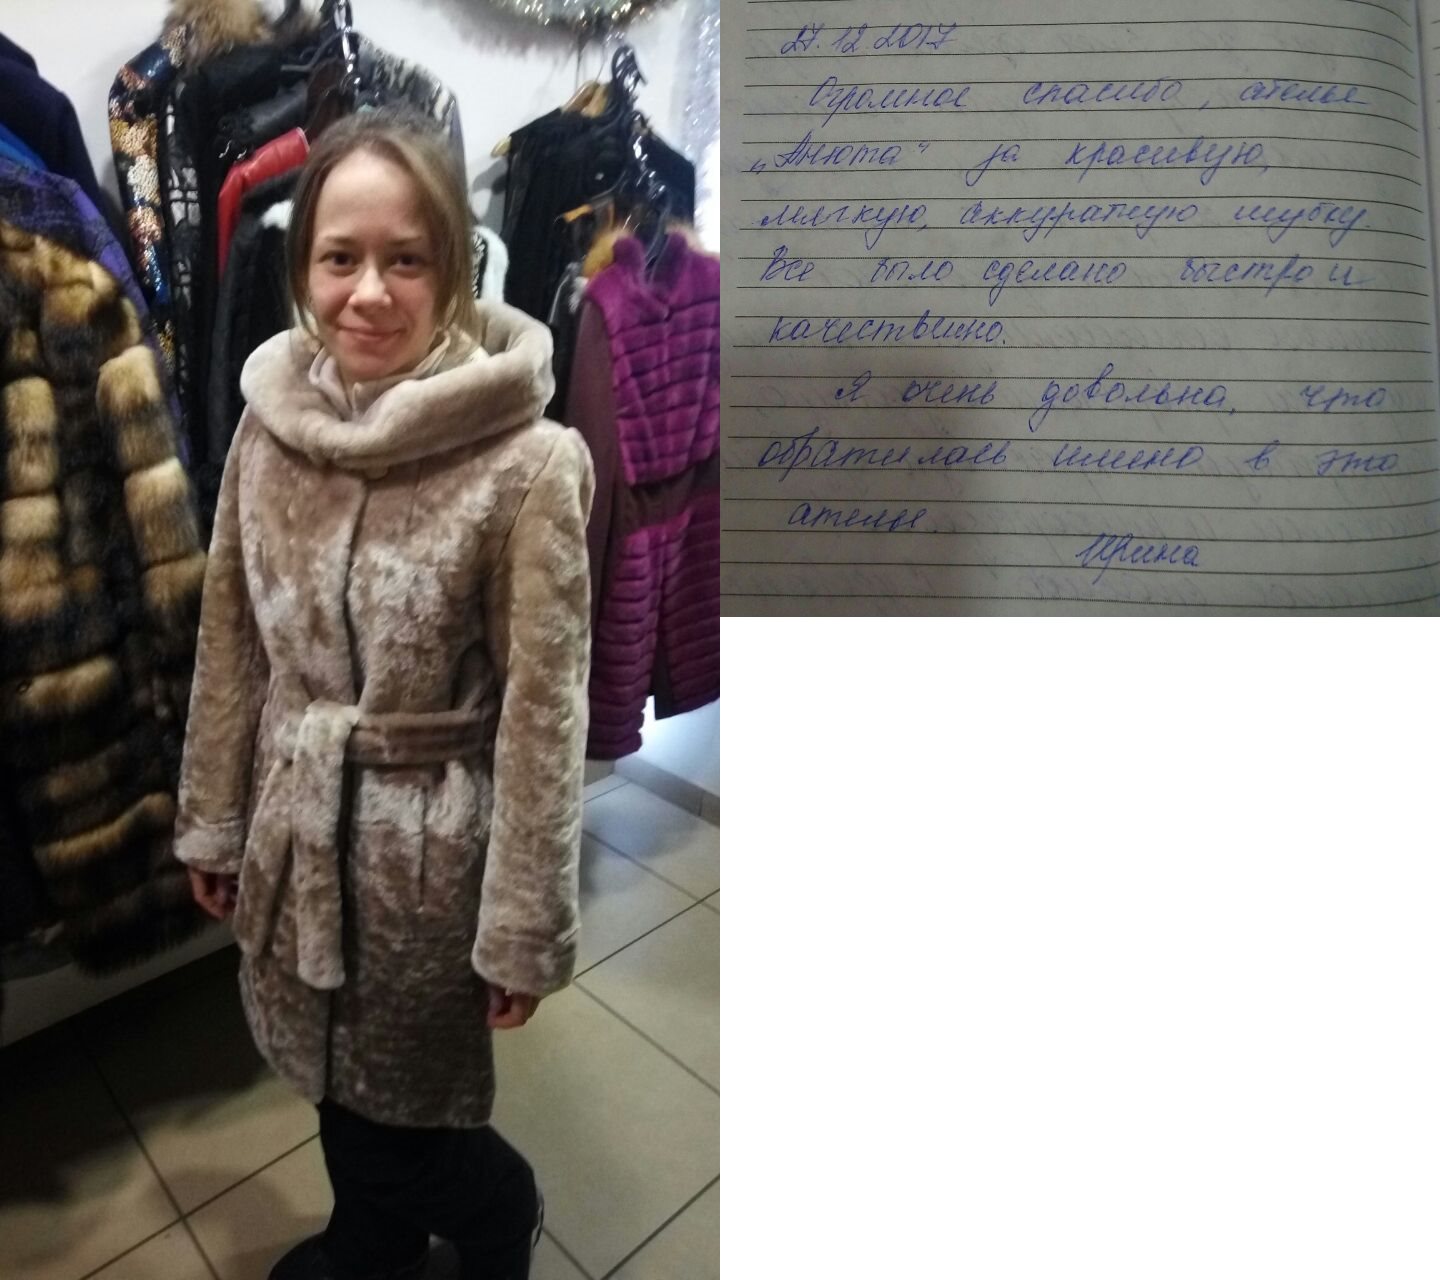 27.12.2017
Огромное спасибо, ателье
"Анюта" за красивую,
мягкую, аккуратную шубку.
Все было сделано быстро и
качественно.
Я очень довольна, что
обратилась имено в это
ателье.
Ирина